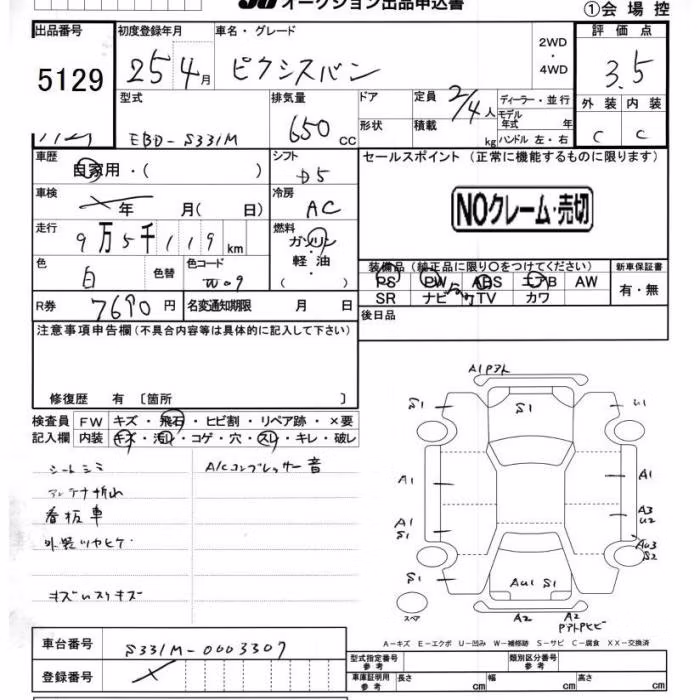 オークション出品申込書
①会場控
出品番号 5129
初度登録年月 25 4月
車名・グレード ピクシスバン
2WD・4WD
評価点 3.5
外装 C 内装 C
型式 EBD-S331M
排気量 650cc
ドア 形状
定員 2/4人
積載 kg
ディーラー・並行
モデル年式 年
ハンドル 左・右
車歴 自家用・( )
シフト D5
車検 年 月( 日)
冷房 AC
走行 9万5千119km
燃料 ガソリン・軽油 ( )
色 白 色替
色コード W09
R券 7690円
名変通知期限 月 日
セールスポイント(正常に機能するものに限ります)
NOクレーム・売切
装備品(純正品に限り○をつけてください)
新車保証書
PS PW ABS エアB AW
有・無
SR ナビ TV カワ
後日品
注意事項申告欄(不具合内容等は具体的に記入して下さい)
修復歴 有 〔箇所 〕
検査員 FW キズ・飛石・ヒビ割・リペア跡・×要
記入欄 内装 キズ・汚レ・コゲ・穴・スレ・キレ・破レ
シートシミ A/Cコンプレッサー音
アンテナ折れ
看板車
外装ツヤヒケ
キズいスリキズ
A1 Pアト
S1 S1 S1
A1 A1
A1 S1 A3 U2
AU3 S2
S1 AU1 S1
スペア
A2 A2
PアトPヒビ
A−キズ E−エクボ U−凹み W−補修跡 S−サビ C−腐食 XX−交換済
車台番号 S331M-0003307
登録番号
型式指定番号 参考
類別区分番号 参考
車庫証明用 参考 長さ cm 幅 cm 高さ cm